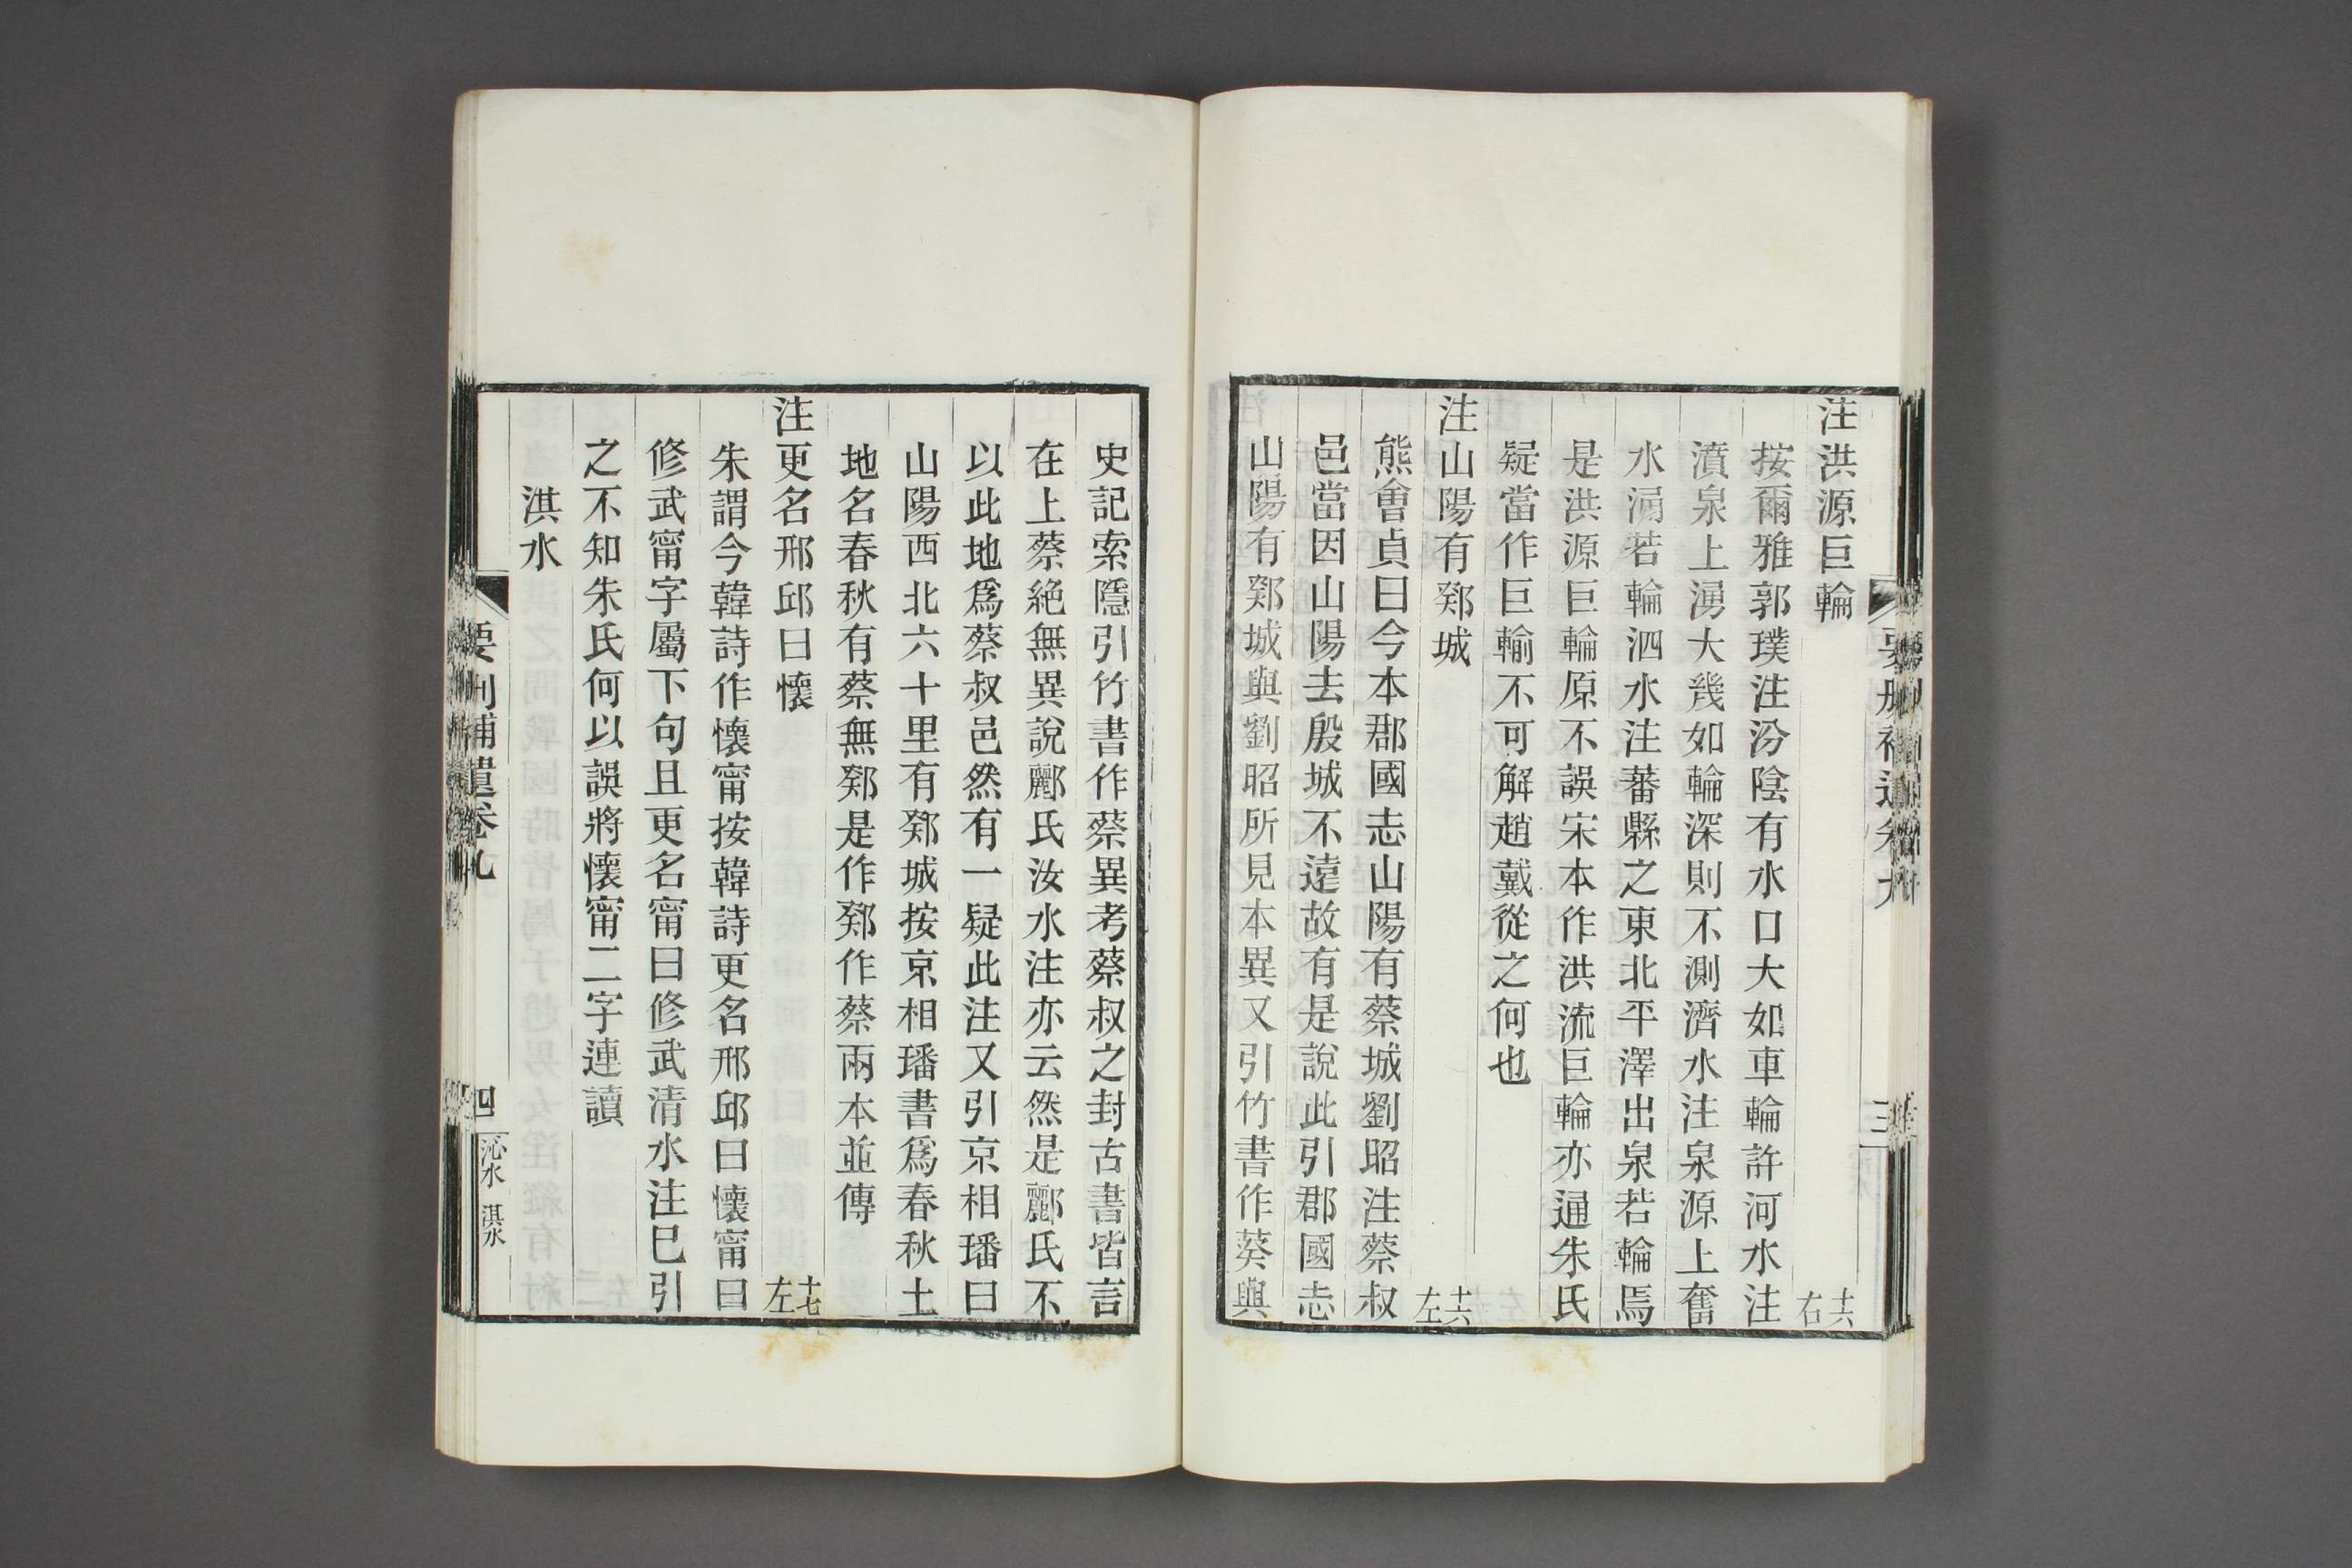 注洪源巨輪 十六右
按爾雅郭璞注汾陰有水口大如車輪許河水注
濆泉上湧大幾如輪深則不測濟水注泉源上奮
水涌若輪泗水注蕃縣之東北平澤出泉若輪焉
是洪源巨輪原不誤宋本作洪流巨輪亦通朱氏
疑當作巨輸不可解趙戴從之何也
注山陽有鄈城 十六左
熊會貞曰今本郡國志山陽有蔡城劉昭注蔡叔
邑當因山陽去殷城不遠故有是說此引郡國志
山陽有鄈城與劉昭所見本異又引竹書作葵與
史記索隱引竹書作蔡異考蔡叔之封古書皆言
在上蔡絕無異說酈氏汝水注亦云然是酈氏不
以此地爲蔡叔邑然有一疑此注又引京相璠曰
山陽西北六十里有鄈城按京相璠書爲春秋土
地名春秋有蔡無鄈是作鄈作蔡兩本並傳
注更名邢邱曰懷 十七左
朱謂今韓詩作懷甯按韓詩更名邢邱曰懷甯曰
修武甯字屬下句且更名甯曰修武清水注巳引
之不知朱氏何以誤將懷甯二字連讀
淇水
要刪補遺卷九
四 沁水 淇水